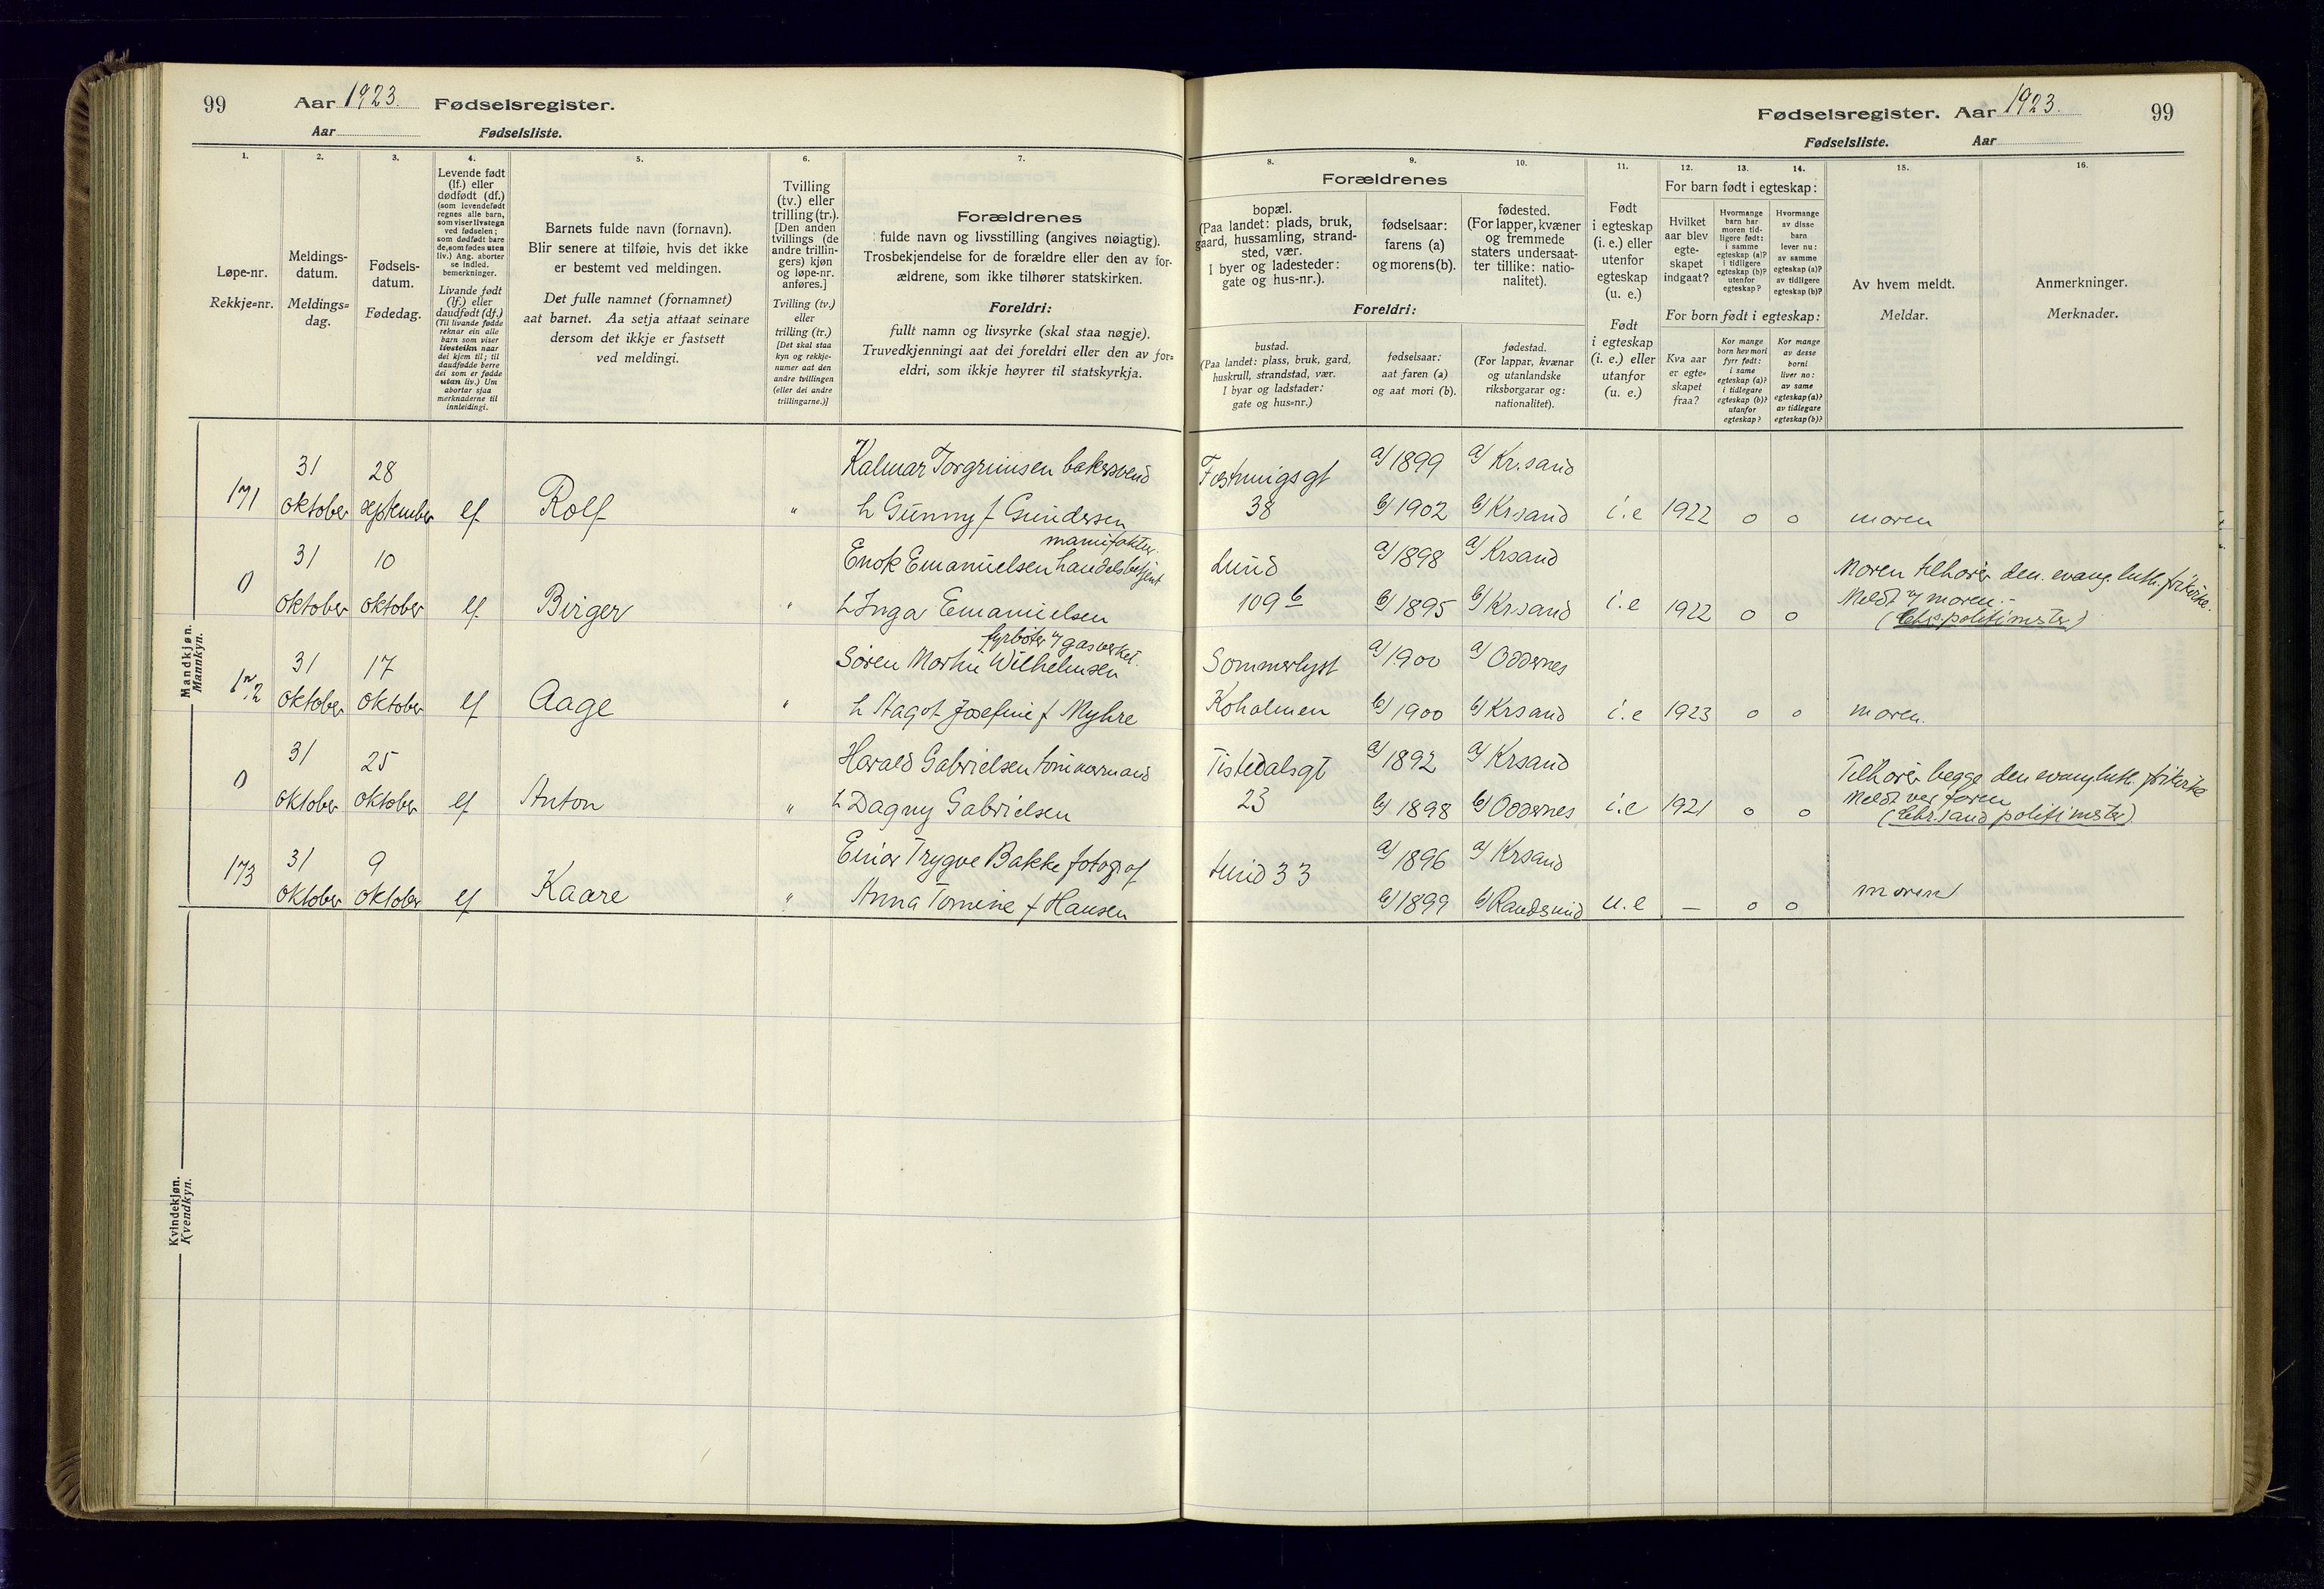 99 Aar 1923. Fødselsregister.
Aar Fødselsliste.
Fødselsregister. Aar 1923. 99
Fødselsliste. Aar
1.
Løpe-nr.
Rekkje=nr.
2.
Meldings-
datum.
Meldings=
dag.
3.
Fødsels-
datum.
Fødedag.
4.
Levende født
(lf.) eller
dødfødt (df.)
(som levendefødt
regnes alle barn,
som viser livstegn
ved fødselen;
som dødfødt bare
de, som fødes uten
liv.) Ang. aborter
se indled.
bemerkninger.
Livande født
(lf.) eller
daudfødt (df.)
(Til livande fødde
reknar ein alle
barn som viser
livsteikn naar
dei kjem til; til
daudfødde berre
dei som er fødde
utan liv.) Um
abortar sjaa
merknaderne til
innleidingi.
5.
Barnets fulde navn (fornavn).
Blir senere at tilføie, hvis det ikke
er bestemt ved meldingen.
Det fulle namnet (fornamnet)
aat barnet. Aa setja attaat seinare
dersom det ikkje er fastsett
ved meldingi.
6.
Tvilling
(tv.) eller
trilling (tr.).
[Den anden
tvillings (de
andre trillin-
gers) kjøn
og løpe-nr.
anføres.]
Tvilling (tv.)
eller
trilling (tr.)
[Det skal staa
kyn og rekkje-
numer aat den
andre tvillingen
(eller dei andre
trillingarne.)]
7.
Forældrenes
fulde navn og livsstilling (angives nøiagtig).
Trosbekjendelse for de forældre eller den av for-
ældrene, som ikke tilhører statskirken.
Foreldri:
fullt namn og livsyrke (skal staa nøgje).
Truvedkjenningi aat dei foreldri eller den av for=
eldri, som ikkje høyrer til statskyrkja.
Forældrenes
8.
bopæl.
(Paa landet: plads, bruk,
gaard, hussamling, strand-
sted, vær.
I byer og ladesteder:
gate og hus-nr.).
9.
fødselsaar:
farens (a)
og morens (b).
10.
fødested.
(For lapper, kvæner
og fremmede
staters undersaat-
ter tillike: natio-
nalitet).
Foreldri:
bustad.
(Paa landet: plass, bruk, gard,
huskrull, strandstad, vær.
I byar og ladstader:
gate og hus=nr.)
fødselsaar:
aat faren (a)
og aat mori (b).
fødestad.
(For lappar, kvænar
og utanlandske
riksborgarar og:
nationalitet).
11.
Født
i egteskap
(i. e.) eller
utenfor
egteskap
(u. e.)
Født
i egteskap
(i. e.) eller
utanfor
(u. e.)
For barn født i egteskap:
12.
Hvilket
aar blev
egte-
skapet
indgaat?
13.
Hvormange
barn har
moren tid-
ligere født:
i samme
egteskap (a)?
i tidligere
egteskap (b)?
utenfor
egteskap?
14.
Hvormange
av disse
barn
lever nu:
av samme
egteskap (a)?
av tidligere
egteskap (b)?
For born født i egteskap:
Kva aar
er egte=
skapet
fraa?
Kor mange
born hev mori
fyrr født:
i same
egteskap (a)?
i tidlegare
egteskap (b)?
utanfor
egteskap?
Kor mange
av desse
borni
liver no:
av same
egteskap (a)?
av tidlegare
egteskap (b)?
15.
Av hvem meldt.
Meldar.
16.
Anmerkninger.
Merknader.
Mandkjøn.
Mannkyn.
31 28 Kalmar Torgrimsen bakersvend Festningsgt a/ 1899 a/ Kr.sand
171 oktober september lf Rolf " h Gunny f Gundersen 38 b/ 1902 b/ Krsand i.e 1922 o o moren
manufaktur
31 10 Enok Emanuelsen handelsbetjent Lund a/ 1898 a/ Krsand Moren tilhører den evang. luth. frikirke.
0 oktober oktober lf Birger " h Inga Emanuelsen 109 b b/ 1895 b/ Krsand i.e 1922 o o Meldt av moren.
politimester)
fyrbøter v/ gasverket.
31 17 Søren Martin Wilhelmsen Sommerlyst a/ 1900 a/ Oddernes
172 oktober oktober lf Aage " h Dagot Josefine f Myhre Koholmen b/ 1900 b/ Krsand i.e 1923 o o moren.
31 25 Harald Gabrielsen tømmermand Tistedalsgt a/ 1892 a/ Krsand Tilhører begge den evang luth. frikirke
0 oktober oktober lf Anton " h Dagny Gabrielsen 23 b/ 1898 b/ Oddernes i.e 1921 o o Meldt ved faren
(Chr.sand politimester).
31 9 Einar Trygve Bakke fotograf Lund 33 a/ 1896 a/ Krsand
173 oktober oktober lf Kaare " Anna Tomine f Hansen b/ 1899 b/ Randsund u.e — o o moren
Kvindekjøn.
Kvendkyn.